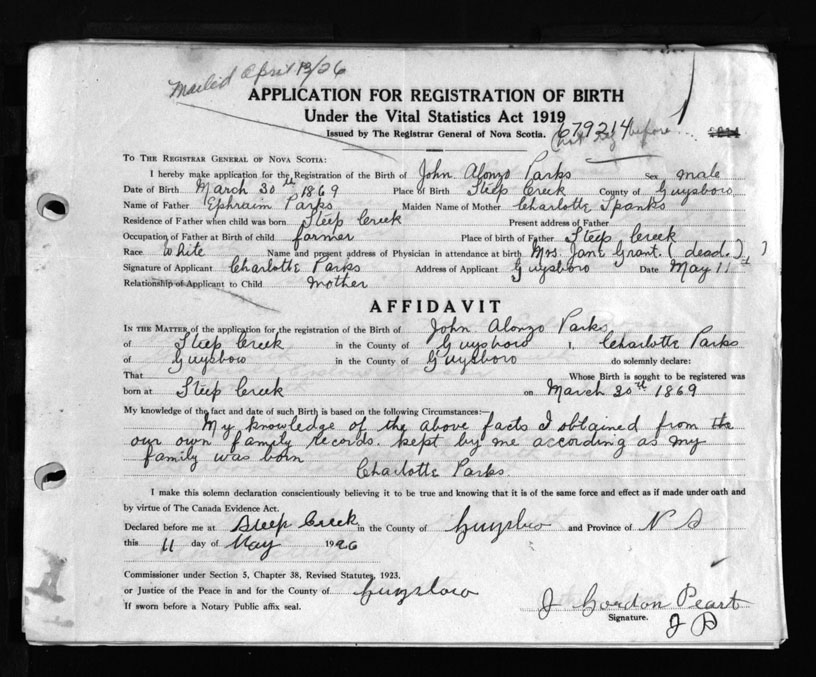 Mailed April 13/26
APPLICATION FOR REGISTRATION OF BIRTH
Under the Vital Statistics Act 1919
Issued by The Registrar General of Nova Scotia.
679214
before
TO THE REGISTRAR GENERAL OF NOVA SCOTIA:
I hereby make application for the Registration of the Birth of John Alonzo Parks Sex male
Date of Birth March 30th 1869 Place of Birth Steep Creek County of Guysboro
Name of Father Ephraim Parks Maiden Name of Mother Charlotte Spanks
Residence of Father when child was born Steep Creek Present address of Father
Occupation of Father at Birth of child farmer Place of birth of Father Steep Creek
Race White Name and present address of Physician in attendance at birth Mrs. Jane Grant. (dead.)
Signature of Applicant Charlotte Parks Address of Applicant Guysboro Date May 11
Relationship of Applicant to Child mother
AFFIDAVIT
IN THE MATTER of the application for the registration of the Birth of John Alonzo Parks
of Steep Creek in the County of Guysboro I, Charlotte Parks
of Guysboro in the County of Guysboro do solemnly declare:
That Whose Birth is sought to be registered was
born at Steep Creek on March 30th 1869
My knowledge of the fact and date of such Birth is based on the following Circumstances:—
My knowledge of the above facts I obtained from the
our own family records. kept by me according as my
family was born
Charlotte Parks.
I make this solemn declaration conscientiously believing it to be true and knowing that it is of the same force and effect as if made under oath and
by virtue of The Canada Evidence Act.
Declared before me at Steep Creek in the County of Guysboro and Province of N S
this 11 day of May 1926
Commissioner under Section 5, Chapter 38, Revised Statutes, 1923.
or Justice of the Peace in and for the County of Guysboro
If sworn before a Notary Public affix seal.
J Gordon Peart
Signature.
J P